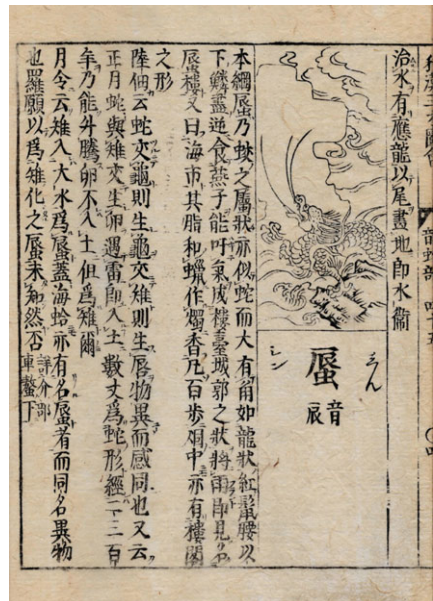 和漢三才圖會 龍蛇部 四十五
治水有應龍以尾畫地即水衞
蜃
音辰
しん
シン
本綱蜃乃蛟之屬狀亦似蛇而大有角如龍狀紅鬣腰以
下鱗盡逆食燕子能吁氣成樓臺城郭之狀將雨即見名
蜃樓又曰海市其脂和蠟作燭香凡百歩烟中亦有樓閣
之形
陸佃云蛇交龜則生龜交雉則生蜃物異而感同也又云
正月蛇與雉交生卵遇雷即入土數丈爲蛇形經二三百
年乃能升騰卵不入土但爲雉爾
月令云雉入大水爲蜃蓋海蛤亦有名蜃者而同名異物
也羅願以爲雉化之蜃未知然否 詳介部車螯下